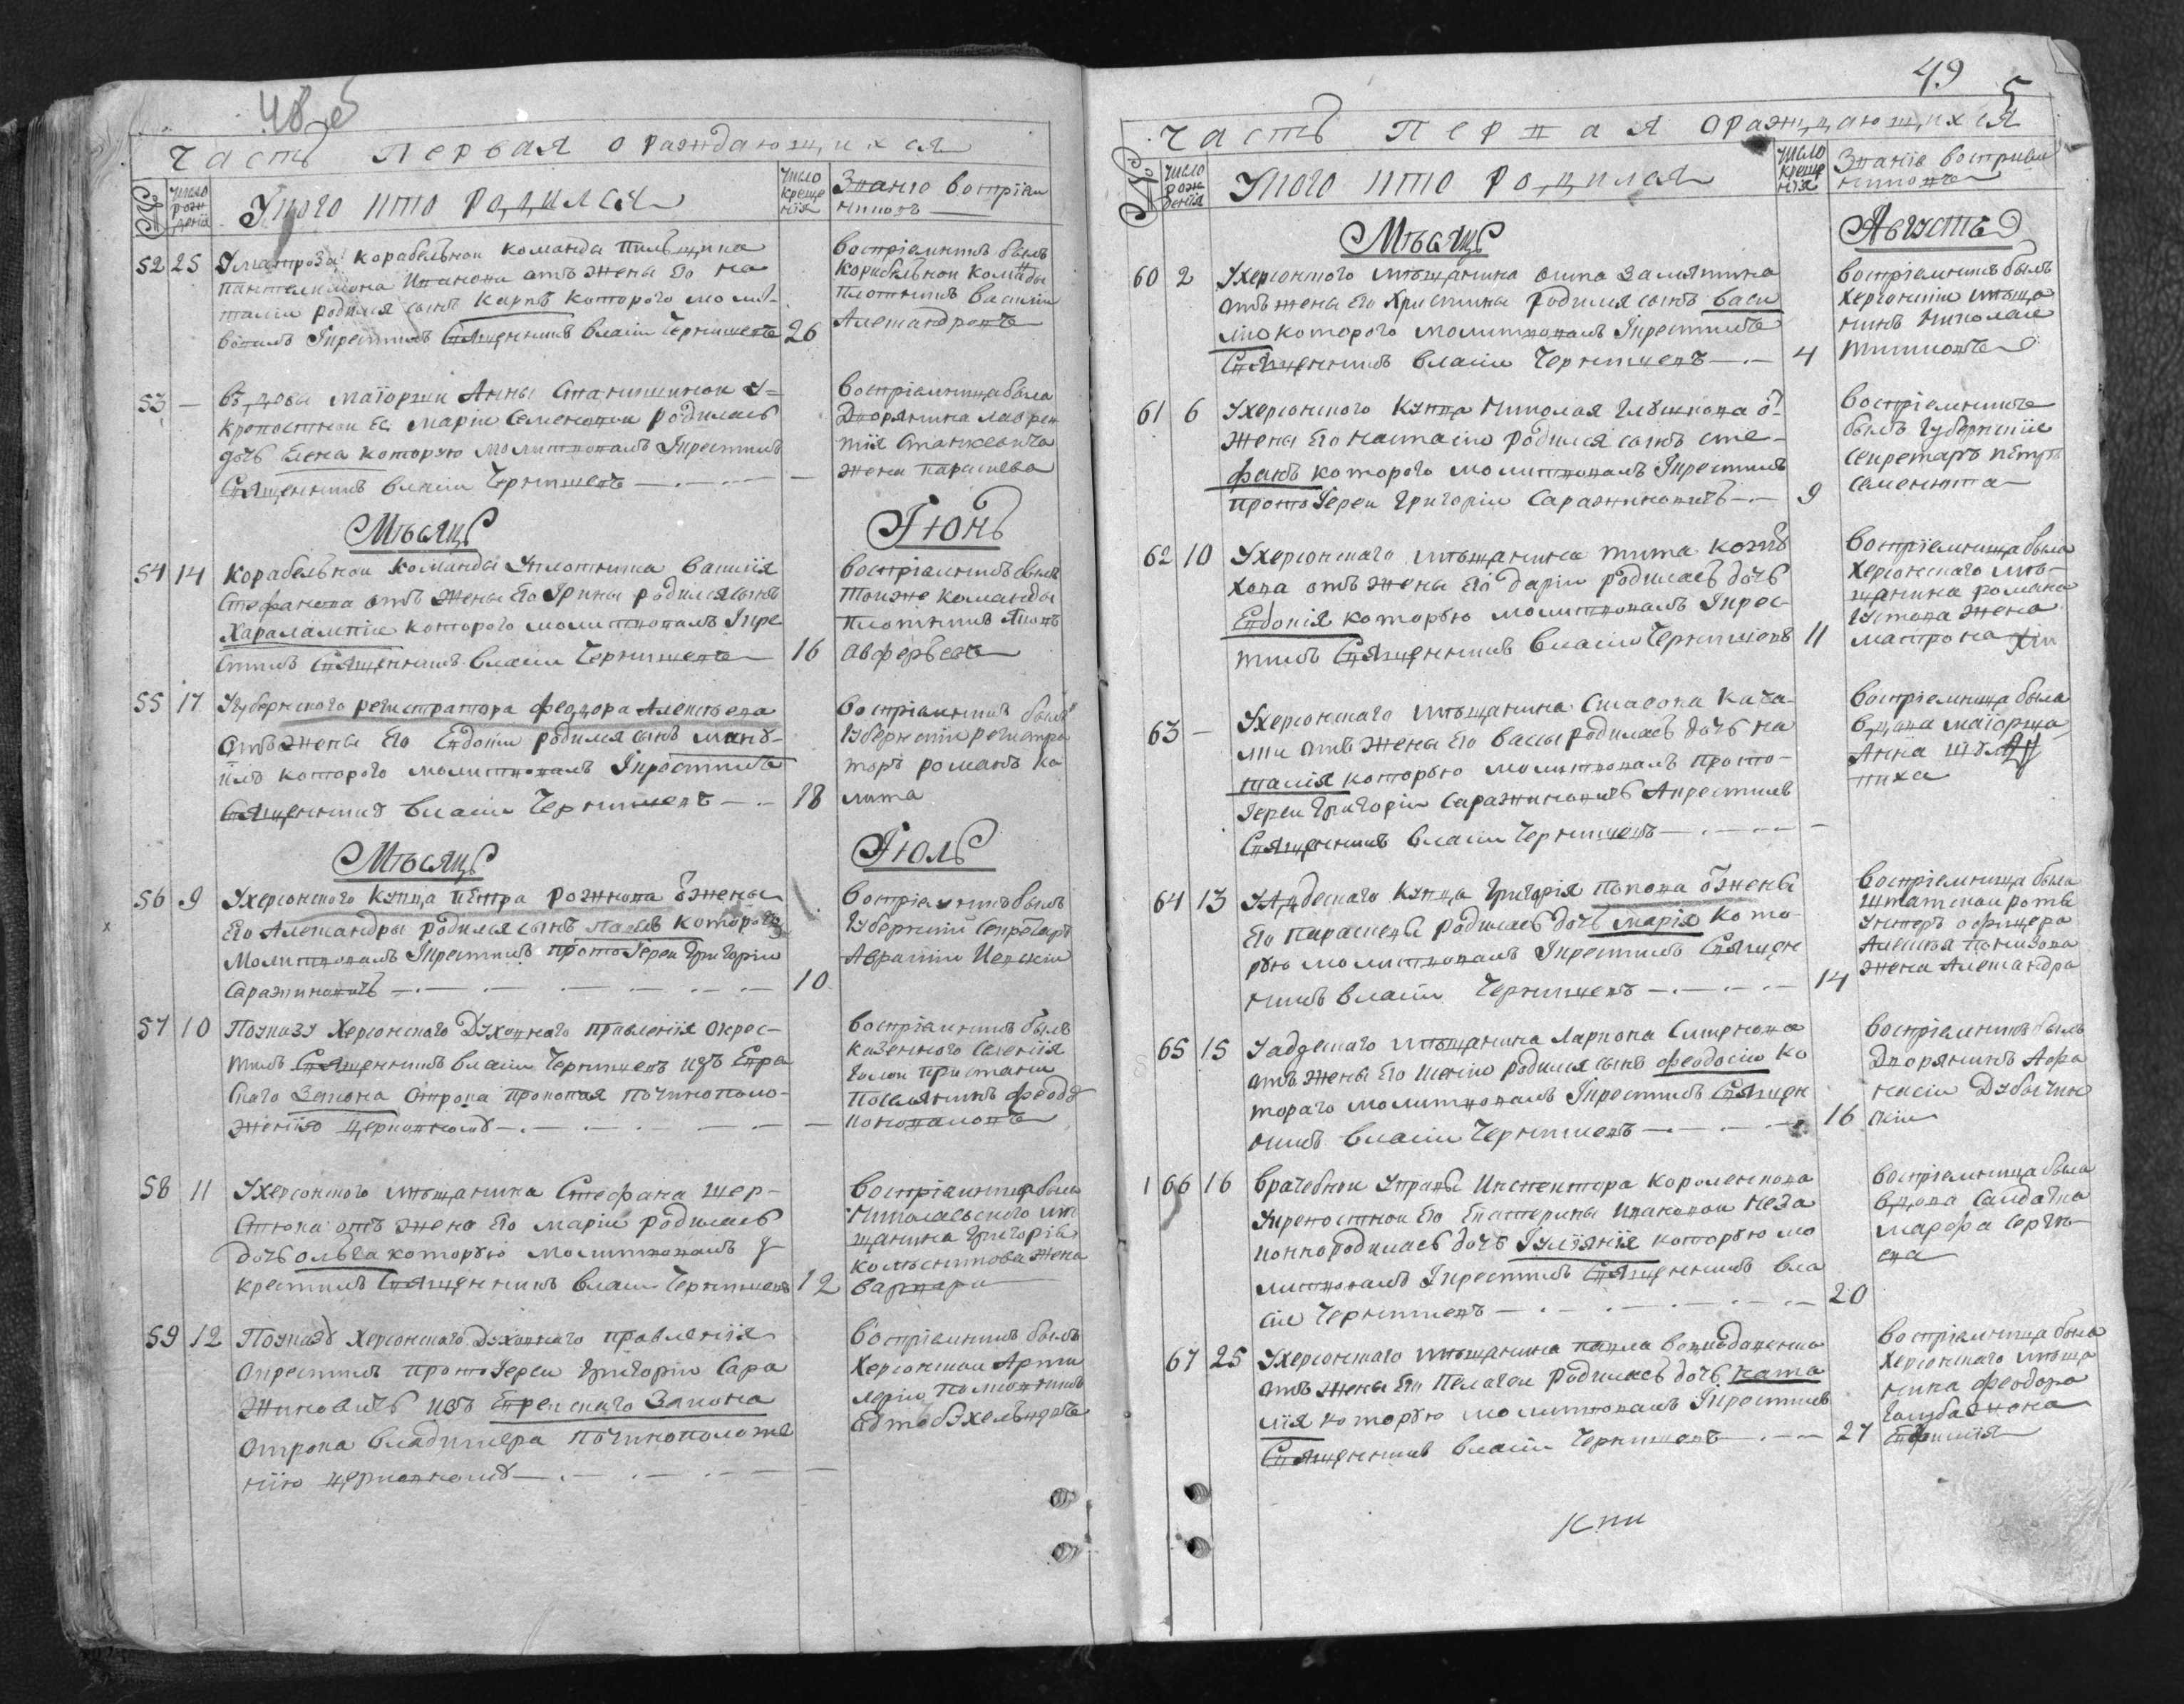 48 об
часть первая о раждающихся
№
число рождения
У кого кто родился
число крещения
Звание восприемниковъ
52 25 У матроза корабелной команды пильщика
Пантелимона Иванова отъ жены его На
талии родился сынъ Карпъ которого молит
вовалъ и крестилъ священникъ Власий Чернишевъ 26
восприемникъ былъ
корабельной команды
плотникъ Василий
Александровъ
53 — вдовы маиорши Анны Станишиной у
крепостной ея Марии Семеновой родилась
дочь Елена которую молитвовалъ и крестилъ
священникъ Власий Чернишевъ — —
восприемница была
дворянина Лаврен
тия Станкевича
жена Параскева
Месяцъ Июнь
54 14 Корабельной команды у плотника Василия
Стефанова отъ жены его Ирины родился сынъ
Харалампий которого молитвовалъ и кре
стилъ священникъ Власий Чернишевъ 16
восприемникъ былъ
той же команды
плотникъ
55 17 У губернского регистратора Феодора Алексеева
отъ жены его Евдокии родился сынъМану
илъ которого молитвовалъ и крестилъ
священникъ Власий Чернишевъ — 18
восприемникъ былъ
губернский регистра
торъ Романъ Ка
лита
Месяцъ Июль
56 9 У херсонского купца Петра Рожнова отъ жены
его Александры родился сынъ Павелъ которого
молитвовалъ и крестилъ протоиерей Григорий
Саражиновичъ — 10
восприемникъ былъ
губернский секретарь
Аврамий
57 10 По указу Херсонского духовного правления окрес
тилъ священникъ Власий Чернишевъ изъ Евра
ского закона отрока Прокопия по чиноположению церковному — —
восприемникъ былъ
казенного селения
Голой пристани
поселянинъ Феодоръ
Коноваловъ
58 11 У херсонского мещанина Стефана Шер
стюка отъ жены его Марии родилась
дочь Ольга которую молитвовалъ и
крестилъ священникъ Власий Чернишевъ 12
восприемница была
Николаевского ме
щанина Григория
Колесникова жена
Варвара
59 12 По указу Херсонского духовного правления
окрестилъ протоиерей Григорий Сара
жиновичъ изъ Еврейского закона
отрока Владимера по чиноположе
нию церковному — —
восприемникъ былъ
Херсонской арти
лерии полковникъ
49
5
часть первая о раждающихся
№
число рождения
У кого кто родился
число крещения
Звание восприемниковъ
Месяцъ Августъ
60 2 У херсонского мещанина Фита Замятина
отъ жены его Христины родился сынъ Васи
лий которого молитвовалъ и крестилъ
священникъ Власий Чернишевъ — 4
восприемникъ былъ
херсонский меща
нинъ Николай
Тихоновъ
61 6 У херсонского купца Николая Глушкова отъ
жены его Настасии родился сынъ Сте
фанъ которого молитвовалъ и крестилъ
протоиерей Григорий Саражиновичъ — 9
восприемникъ
былъ губернский
секретарь Петръ
Семенюта
62 10 У херсонского мещанина Тита Кож
хова отъ жены его Дарии родилась дочь
Евдокия которую молитвовалъ и крес
тилъ священникъ Власий Чернишевъ 11
восприемница была
херсонского ме
щанина Романа
Густова жена
Матрона
63 — У херсонского мещанина Сидора Кача
ли отъ жены его Вассы родилась дочь На
талия которую молитвовалъ прото
иерей Григорий Саражиновичъ а крестилъ
священникъ Власий Чернишевъ — —
восприемница была
вдова маиорша
Анна
64 13 У Адеского купца Григория Попова отъ жены
его Параскевы родилась дочь Мария кото
рую молитвовалъ и крестилъ священ
никъ Власий Чернишевъ — 14
восприемница была
штатской роты
унтеръ офицера
Алексея Понизова
жена Александра
65 15 У адеского мещанина Лариона Смирнова
отъ жены его Ксении родился сынъ Феодосий ко
тораго молитвовалъ и крестилъ священ
никъ Власий Чернишевъ — 16
восприемникъ былъ
дворянинъ Афа
насий Дубовин
ский
66 16 Врачебной управы инспектора Короленкова
у крепостной его Екатерины Ивановой неза
конно родилась дочь Иулияния которую мо
литвовалъ и крестилъ священникъ Вла
сий Чернишевъ — 20
восприемница была
вдова салдатка
Марфа Серге
ева
67 25 У херсонского мещанина Павла
отъ жены его Пелагеи родилась дочь Ната
лия которую молитвовалъ и крестилъ
священникъ Власий Чернишевъ — 27
восприемница была
херсонского меща
нина Феодора
Голуба жена
Евфимия